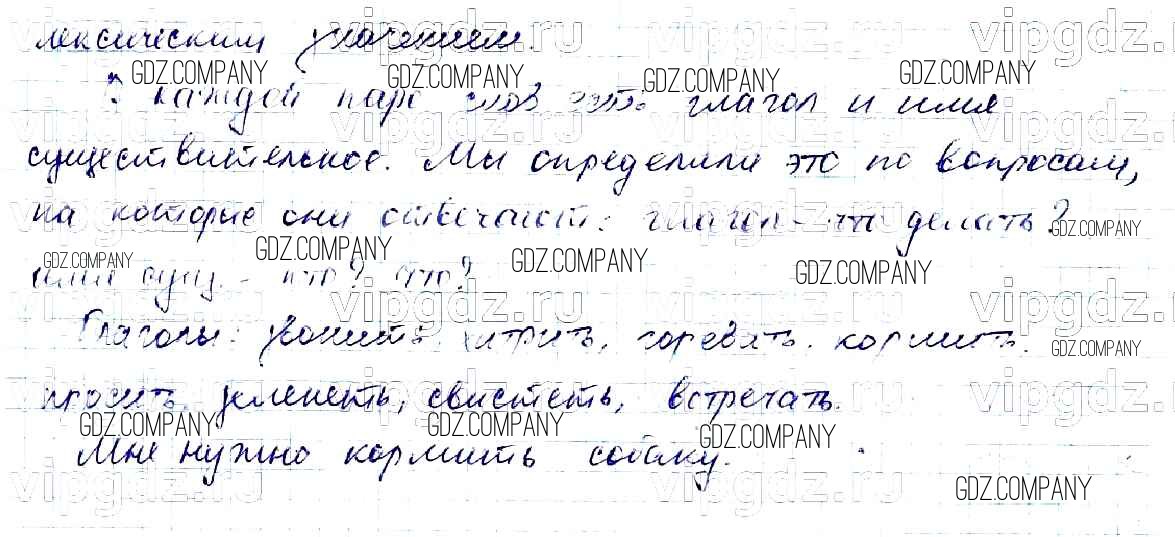 лексическим значением.
В каждой паре слов есть глагол и имя
существительное. Мы определили это по вопросам,
на которые они отвечают: глагол - что делать?
имя сущ. - кто? что?
Глаголы: звонить, хитрить, горевать, кормить,
просить, зеленеть, свистеть, встречать.
Мне нужно кормить собаку.